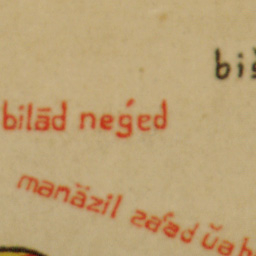 biš
bilād neǵed
manäzil za'ad ŭah